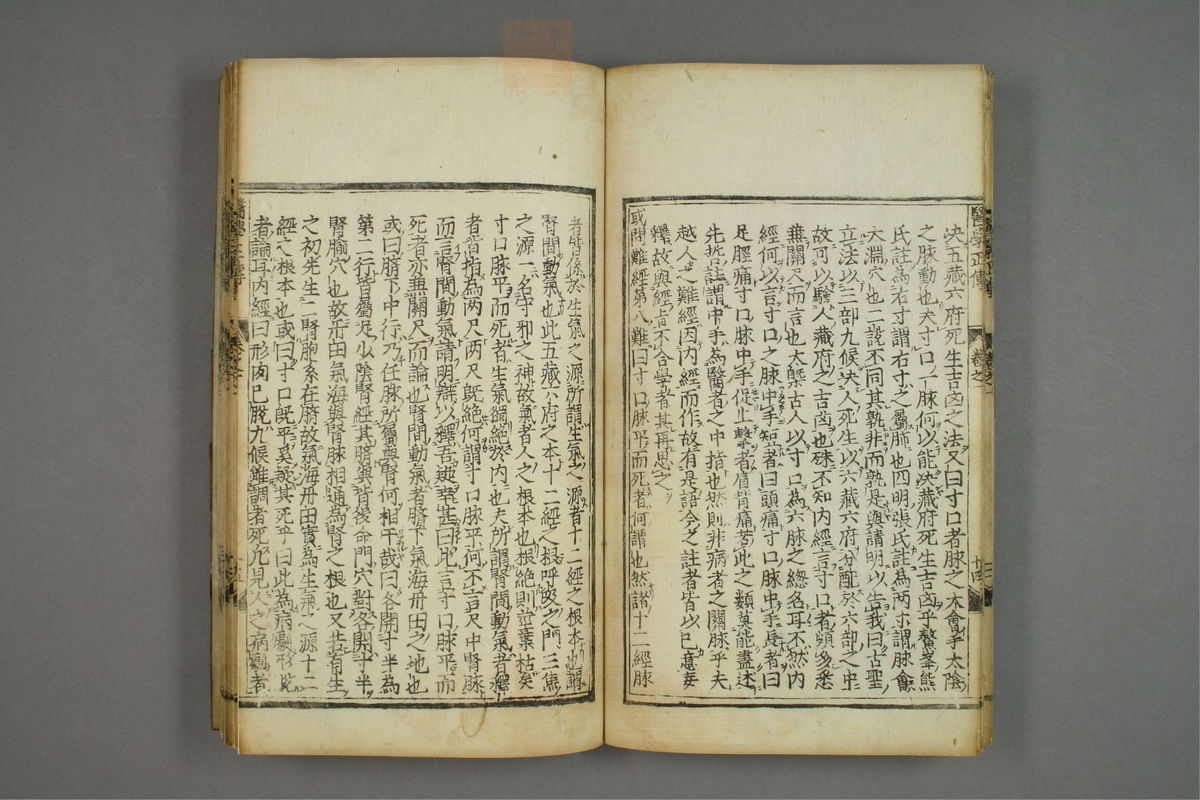 醫學正傳 卷之一 廿四
決五藏六府死生吉凶之法又曰寸口者脉之大會手太陰
之脉動也夫寸口一脉何以能決藏府死生吉凶乎鰲峯熊
氏註為右寸謂右寸之屬肺也四明張氏註為兩寸謂脉會
大淵穴也二說不同其孰非而孰是與請明以告我曰古聖
立法以三部九候決人死生以六藏六府分配於六部之中
故可以驗人藏府之吉凶也殊不知內經言寸口者頗多悉
無關尺而言也大槩古人以寸口為六脉之緫名耳不然內
經何以言寸口之脉中手短者曰頭痛寸口脉中手長者曰
足脛痛寸口脉中手促上擊者肩背痛若此之類莫能盡述
先哲註謂中手為醫者之中指也然則非病者之關脉乎夫
越人之難經因內經而作故有是語今之註者皆以已意妄
釋故與經旨不合學者其再思之
或問難經第八難曰寸口脉平而死者何謂也然諸十二經脉
者皆係於生氣之源所謂生氣之源者十二經之根本也謂
腎間動氣也此五藏六府之本十二經之根呼吸之門三焦
之源一名守邪之神故氣者人之根本也根絕則莖葉枯矣
寸口脉平而死者生氣獨絕於內也夫所謂腎間動氣者
者皆指為两尺两尺既絕何謂寸口脉平何不言尺中腎脉
而言腎間動氣請明辯以釋吾疑幸甚曰此言寸口脉平而
死者亦無關尺而論也腎間動氣者臍下氣海丹田之地也
或曰臍下中行乃任脉所屬與腎何相干哉曰各開寸半為
第二行皆屬足少陰腎經其臍與背後命門穴對各開寸半
腎腧穴也故丹田氣海與腎脉相通為腎之根也又若有生
之初先生二腎胞系在臍故氣海丹田實為生氣之源十二
經之根本也或曰寸口既平奚疑其死乎曰此為病劇形脫
者論耳內經曰形肉已脫九候雖調者死凡見人之病劇者
醫學正傳 卷之一 廿五